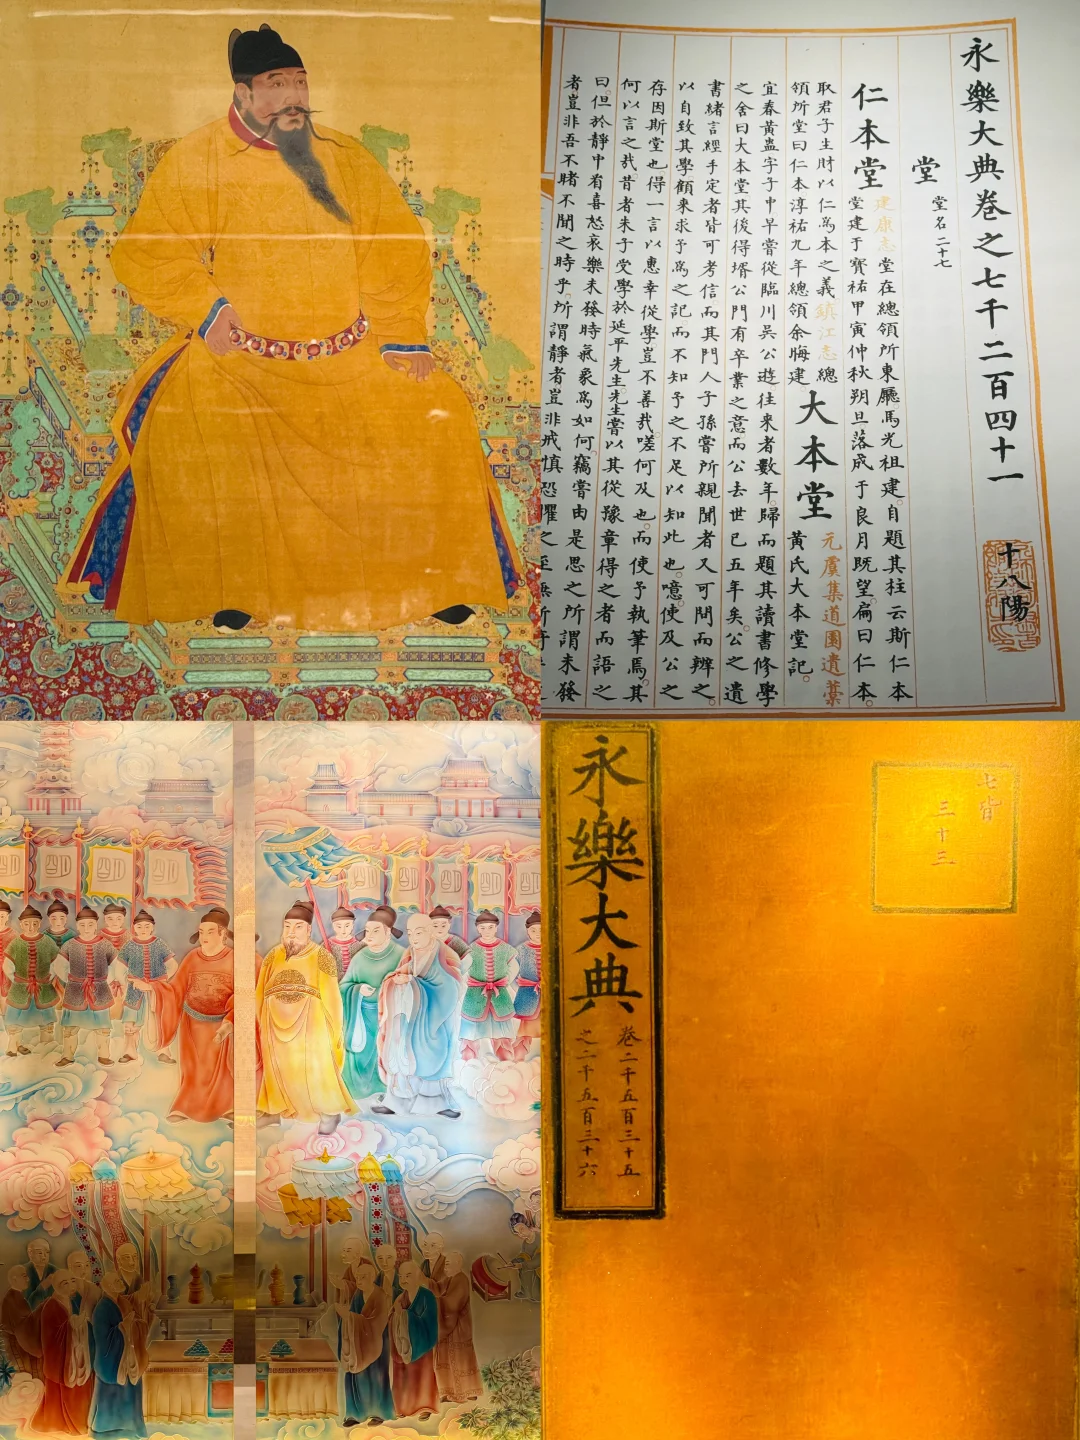 永樂大典卷之七千二百四十一 十八陽
堂 堂名二十七
仁本堂
建康志堂在總領所東廳馬光祖建。自題其柱云斯仁本
堂建于寶祐甲寅仲秋朔旦落成于良月既望。扁曰仁本。
取君子生財以仁爲本之義鎮江志總
領所堂曰仁本淳祐九年總領余晦建
大本堂
元虞集道園遺藁
黃氏大本堂記。
宜春黃盅字于中早嘗從臨川吳公遊往來者數年。歸而題其讀書修學
之舍曰大本堂其後得壻公門有卒業之意而公去世已五年矣。公之遺
書緒言經手定者皆可考信而其門人子孫嘗所親聞者又可問而辨之。
以自致其學顧來求予爲之記而不知予之不足以知此也。噫。使及公之
存因斯堂也得一言以惠幸從學豈不善哉。嗟何及也。而使予執筆焉。其
何以言之哉昔者朱子受學於延平先生。先生嘗以其從豫章得之者而語之
曰。但於靜中看喜怒哀樂未發時氣象爲如何。竊嘗由是思之所謂未發
者豈非吾不睹不聞之時乎。所謂靜者豈非戒慎恐懼之至無所
明
明
明
明
永樂大典
卷二千五百三十五
之二千五百三十六
七皆
三十三